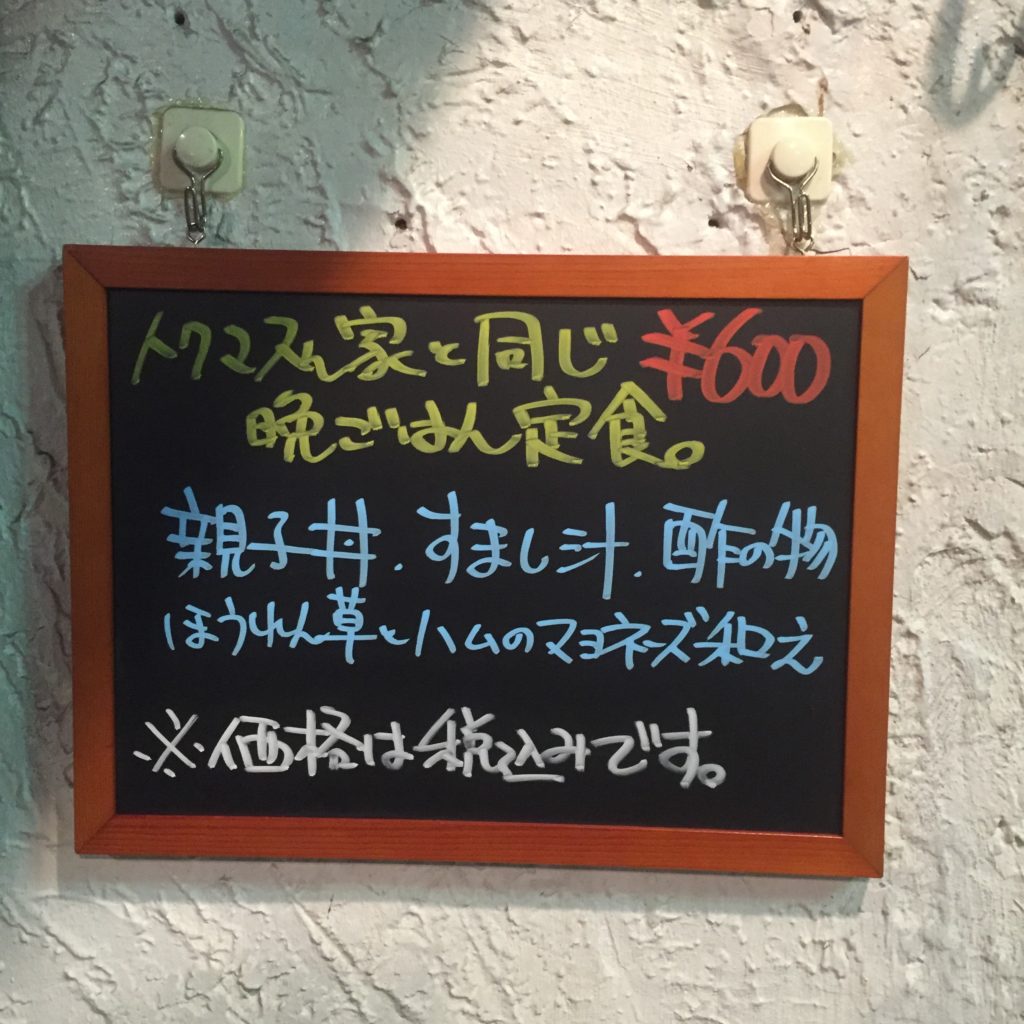 トクマスん家と同じ ¥600
晩ごはん定食。
親子丼.すまし汁.酢の物
ほうれん草とハムのマヨネーズ和え
※価格は税込みです。